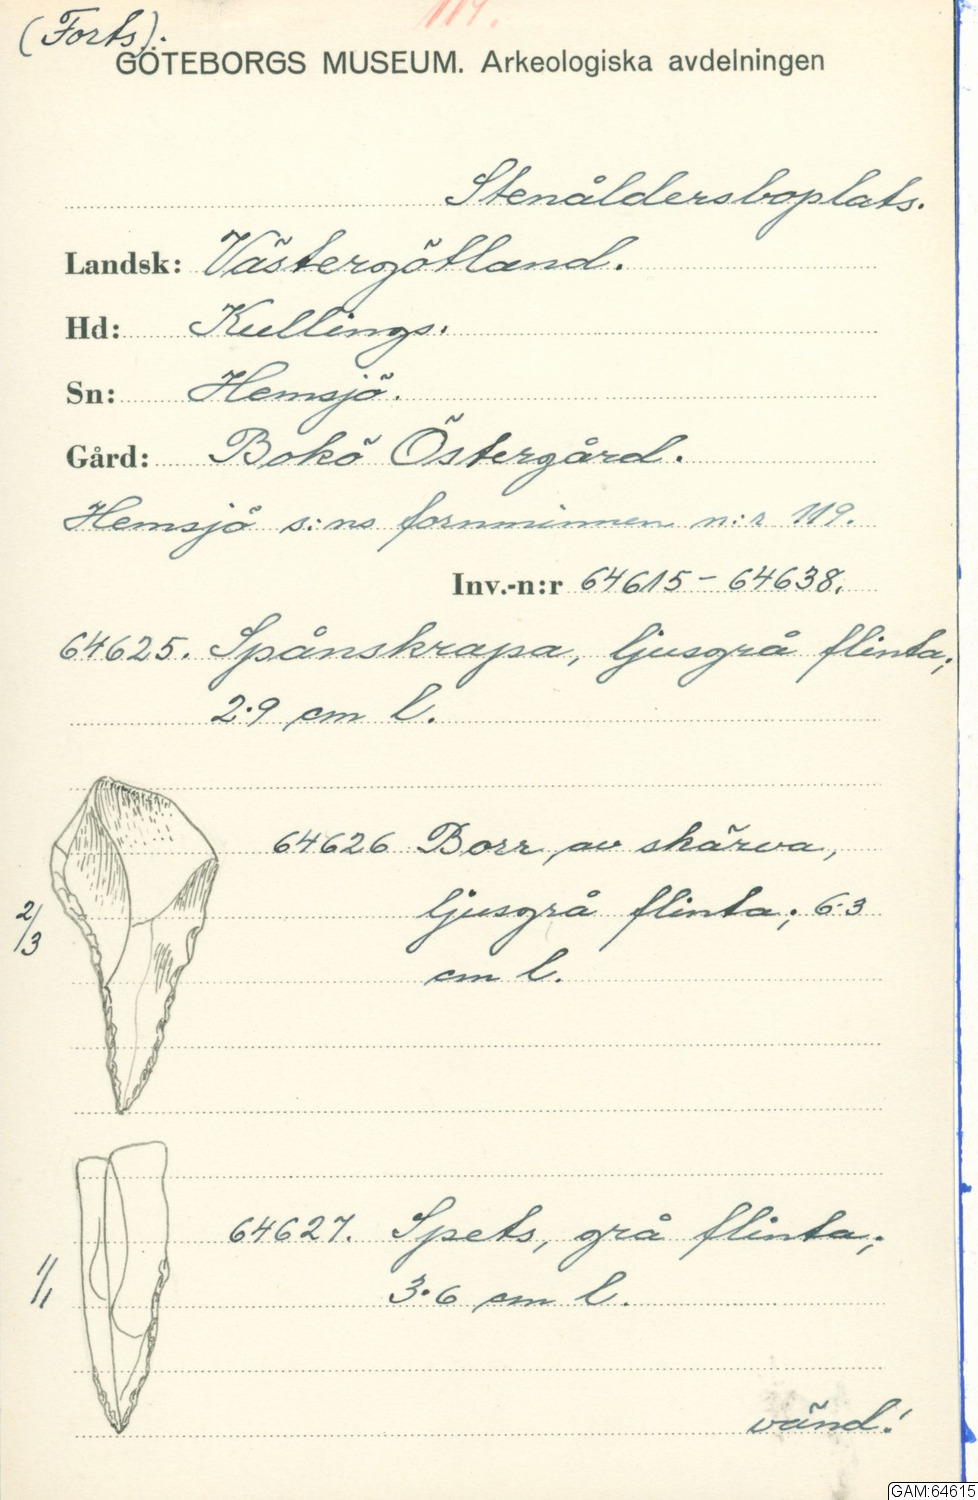 119.
(Forts).
GÖTEBORGS MUSEUM. Arkeologiska avdelningen
Stenåldersboplats.
Landsk: Västergötland.
Hd: Kullings.
Sn: Hemsjö.
Gård: Bokö Östergård.
Hemsjö s:ns fornminnen n:r 119.
Inv.-n:r 64615-64638.
64625. Spånskrapa, ljusgrå flinta;
2.9 cm l.
64626 Borr, av skärva,
2/3 ljusgrå flinta; 6.3
cm l.
64627. Spets, grå flinta;
1/1 3.6 cm l.
vänd!
GAM:64615